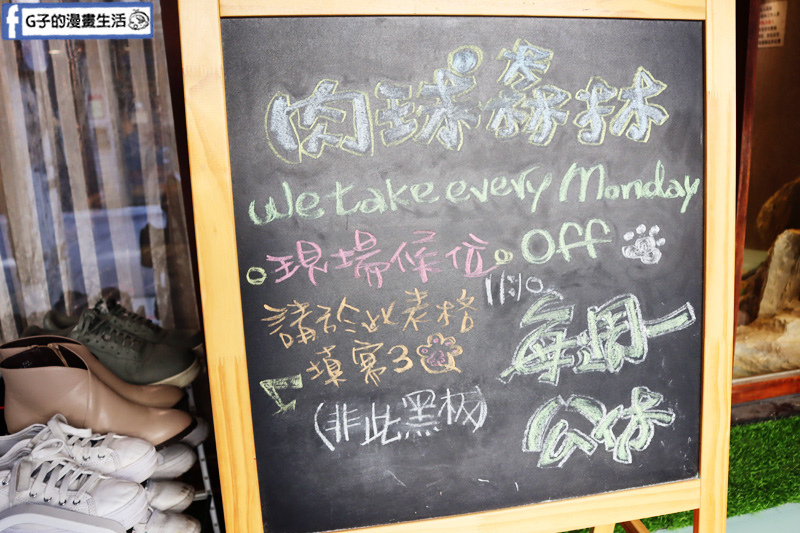 G子的漫畫生活
肉球森林
We take every Monday
off
現場候位
11:10
請於此表格
填寫
每週一
公休
(非此黑板)